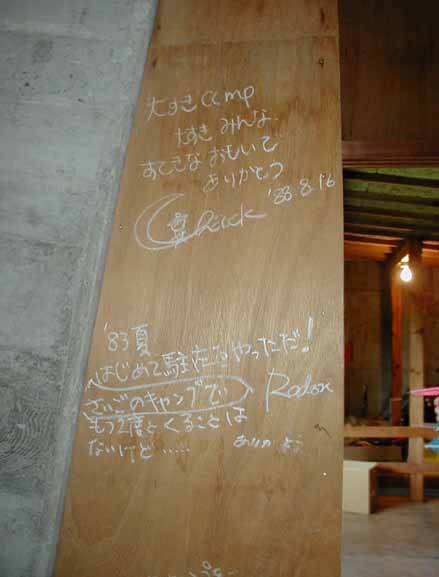 大すき camp
大すき みんな
すてきな おもいで
ありがとう
'83.8.16
'83夏
はじめて駐在をやっただ!
さいごのキャンプで
もう2度とくることは
ないけど.....